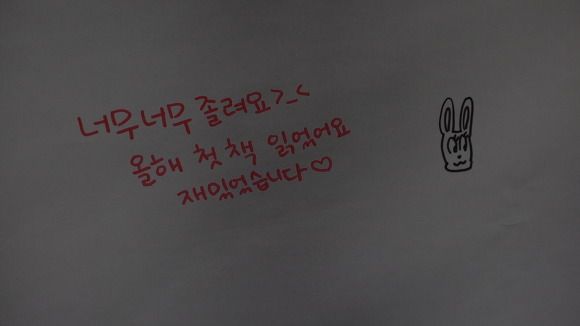 너무너무 졸려요>_<
올해 첫 책 읽었어요
재밌었습니다♡